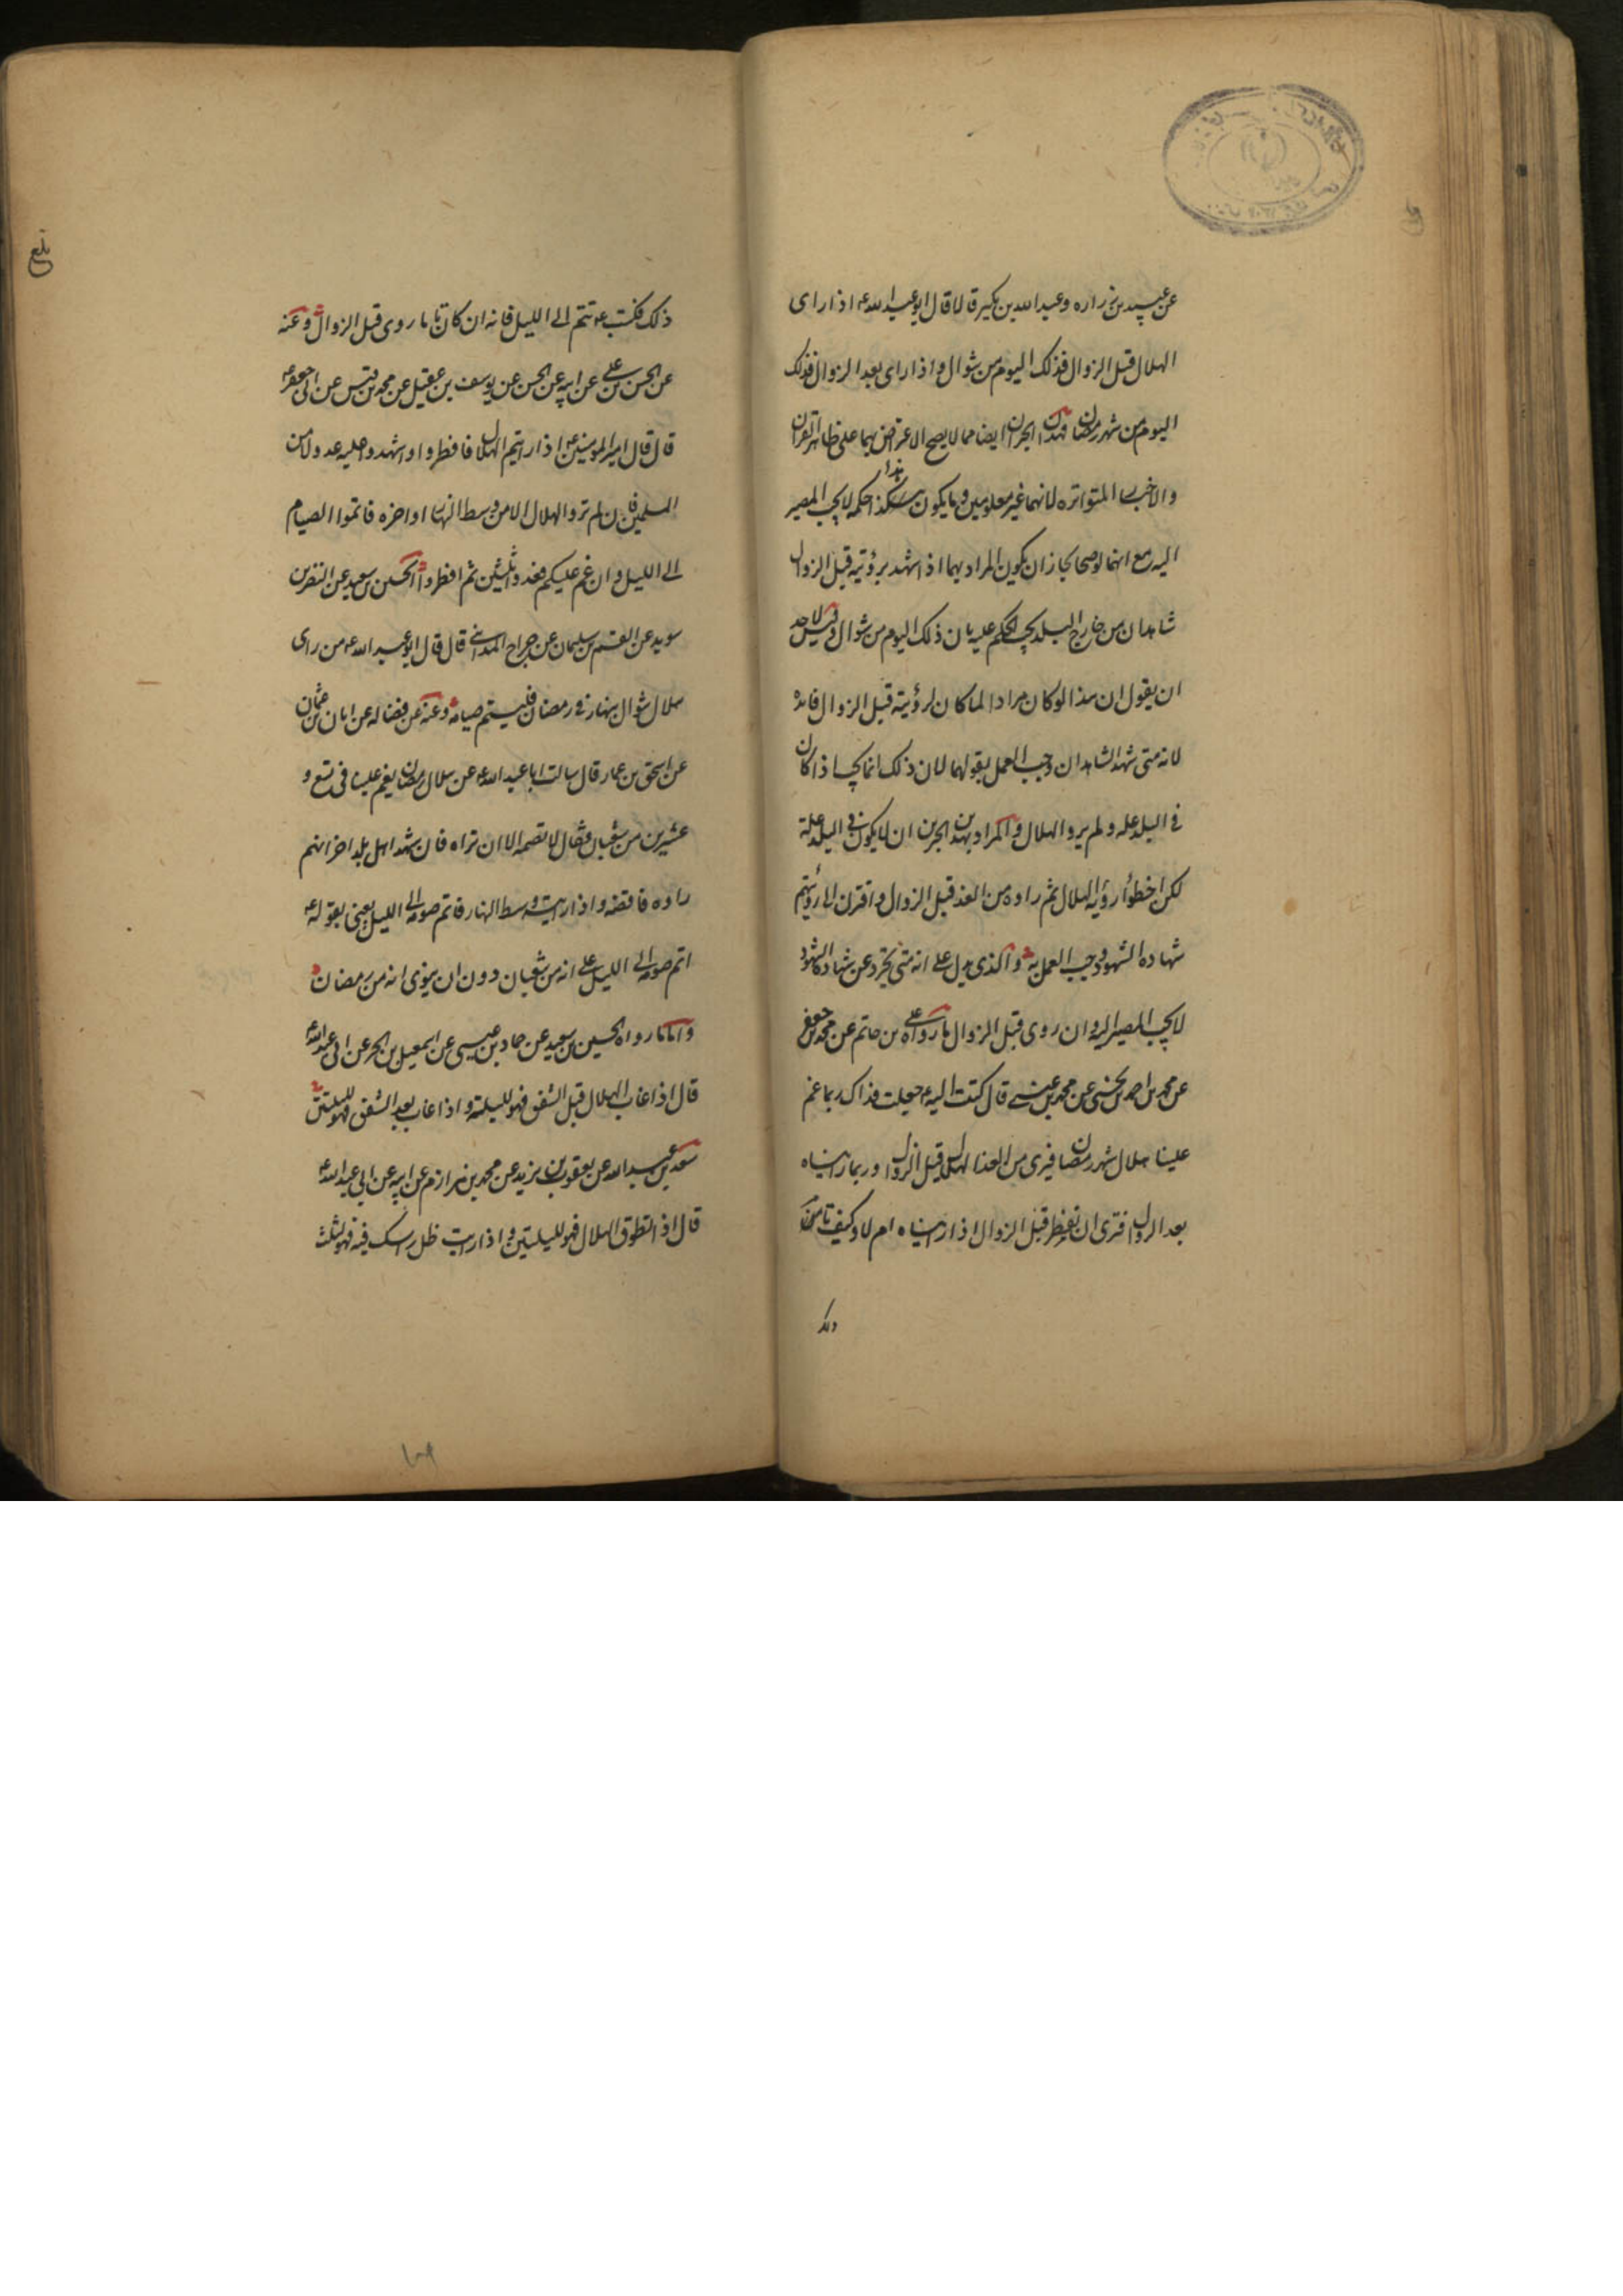 عن عبيد بن زراره وعبد الله بن بكير قالا قال ابو عبد الله ع اذا رأى
الهلال قبل الزوال فذلك اليوم من شوال واذا رأى بعد الزوال فذلك
اليوم من شهر رمضان فهذان الخبران ايضا مما لا يصح الاعتراض بهما على ظاهر القران
والاخبار المتواتره لانهما غير معلومين وما يكون هذا حكمه لا يجب المصير
اليه مع انهما لو صحا لجاز ان يكون المراد بهما اذا شهد برؤيته قبل الزوال
شاهدان من خارج البلد يجب الحكم عليه بان ذلك اليوم من شوال وليس لاحد
ان يقول ان هذا لو كان مرادا لما كان لرؤيته قبل الزوال فائده
لانه متى شهد الشاهدان وجب العمل بقولهما لان ذلك انما يجب اذا كان
في البلد عله ولم يروا الهلال والمراد بهذين الخبرين ان لا يكون في البلد علة
لكن اخطؤا رؤية الهلال ثم راوه من الغد قبل الزوال واقترن الى رؤيتهم
شهاده الشهود وجب العمل به والذي يدل على انه متى تجرد عن شهادة الشهود
لا يجب المصير اليه وان روى قبل الزوال ما رواه علي بن حاتم عن محمد بن جعفر
عن محمد بن احمد بن يحيى عن محمد بن عيسى قال كتبت اليه ع جعلت فداك ربما غم
علينا هلال شهر رمضان فيرى من الغد الهلال قبل الزوال وربما رايناه
بعد الزوال افترى ان نفطر قبل الزوال اذا رايناه ام لا وكيف تامرنا
ذلك
ذلك فكتب ع تتم الى الليل فانه ان كان تاما روى قبل الزوال وعنه
عن الحسن بن علي عن ابيه عن الحسن عن يوسف بن عقيل عن محمد بن قيس عن ابي جعفر ع
قال قال امير المومنين ع اذا رايتم الهلال فافطروا او اشهدوا عليه عدولا من
المسلمين فان لم تروا الهلال الا من وسط النهار او اخره فاتموا الصيام
الى الليل وان غم عليكم فعدوا ثلثين ثم افطروا الحسين بن سعيد عن النضر بن
سويد عن القسم بن سليمان عن جراح المدايني قال قال ابو عبد الله ع من راى
هلال شوال بنهار في رمضان فليتم صيامه وعنه عن فضاله عن ابان بن عثمان
عن اسحق بن عمار قال سالت ابا عبد الله ع عن هلال رمضان يغم علينا في تسع و
عشرين من شعبان فقال لا تصمه الا ان تراه فان شهد اهل بلد اخر انهم
راوه فاقضه واذا رايته وسط النهار فاتم صومه الى الليل يعني بقوله ع
اتم صومه الى الليل على انه من شعبان دون ان ينوى انه من رمضان
واما ما رواه الحسين بن سعيد عن حماد بن عيسى عن اسمعيل بن الحر عن ابي عبد الله ع
قال اذا غاب الهلال قبل الشفق فهو لليلته واذا غاب بعد الشفق فهو لليلتين
سعد بن عبد الله عن يعقوب بن يزيد عن محمد بن مرازم عن ابيه عن ابي عبد الله ع
قال اذا تطوق الهلال فهو لليلتين واذا رايت ظل راسك فيه فهو لثلث